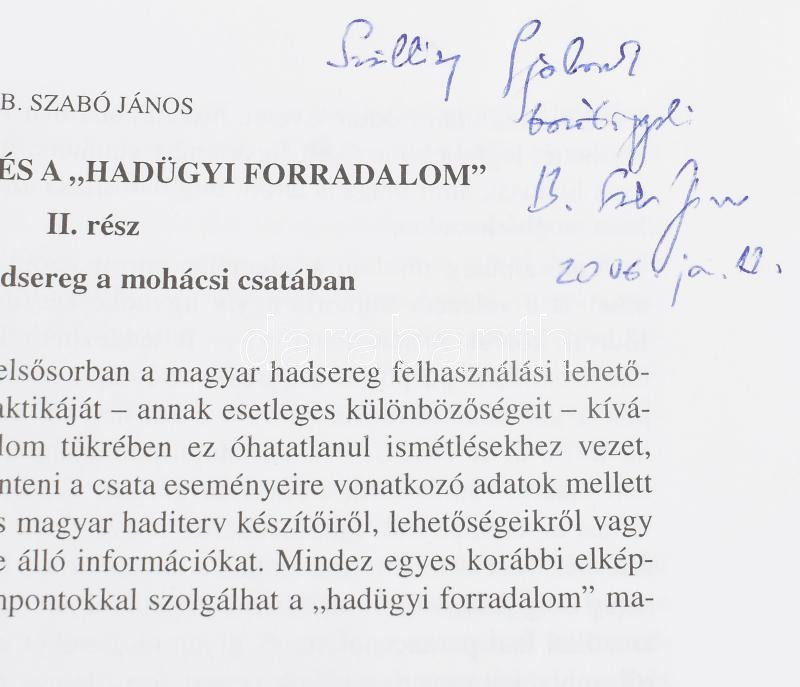 B. SZABÓ JÁNOS
ÉS A „HADÜGYI FORRADALOM”
II. rész
dsereg a mohácsi csatában
elsősorban a magyar hadsereg felhasználási lehető-
aktikáját – annak esetleges különbözőségeit – kívá-
lom tükrében ez óhatatlanul ismétlésekhez vezet,
nteni a csata eseményeire vonatkozó adatok mellett
s magyar haditerv készítőiről, lehetőségeikről vagy
e álló információkat. Mindez egyes korábbi elkép-
npontokkal szolgálhat a „hadügyi forradalom” ma-
barátsággal:
B. Szabó János
2006. ja. 12.
darabanth